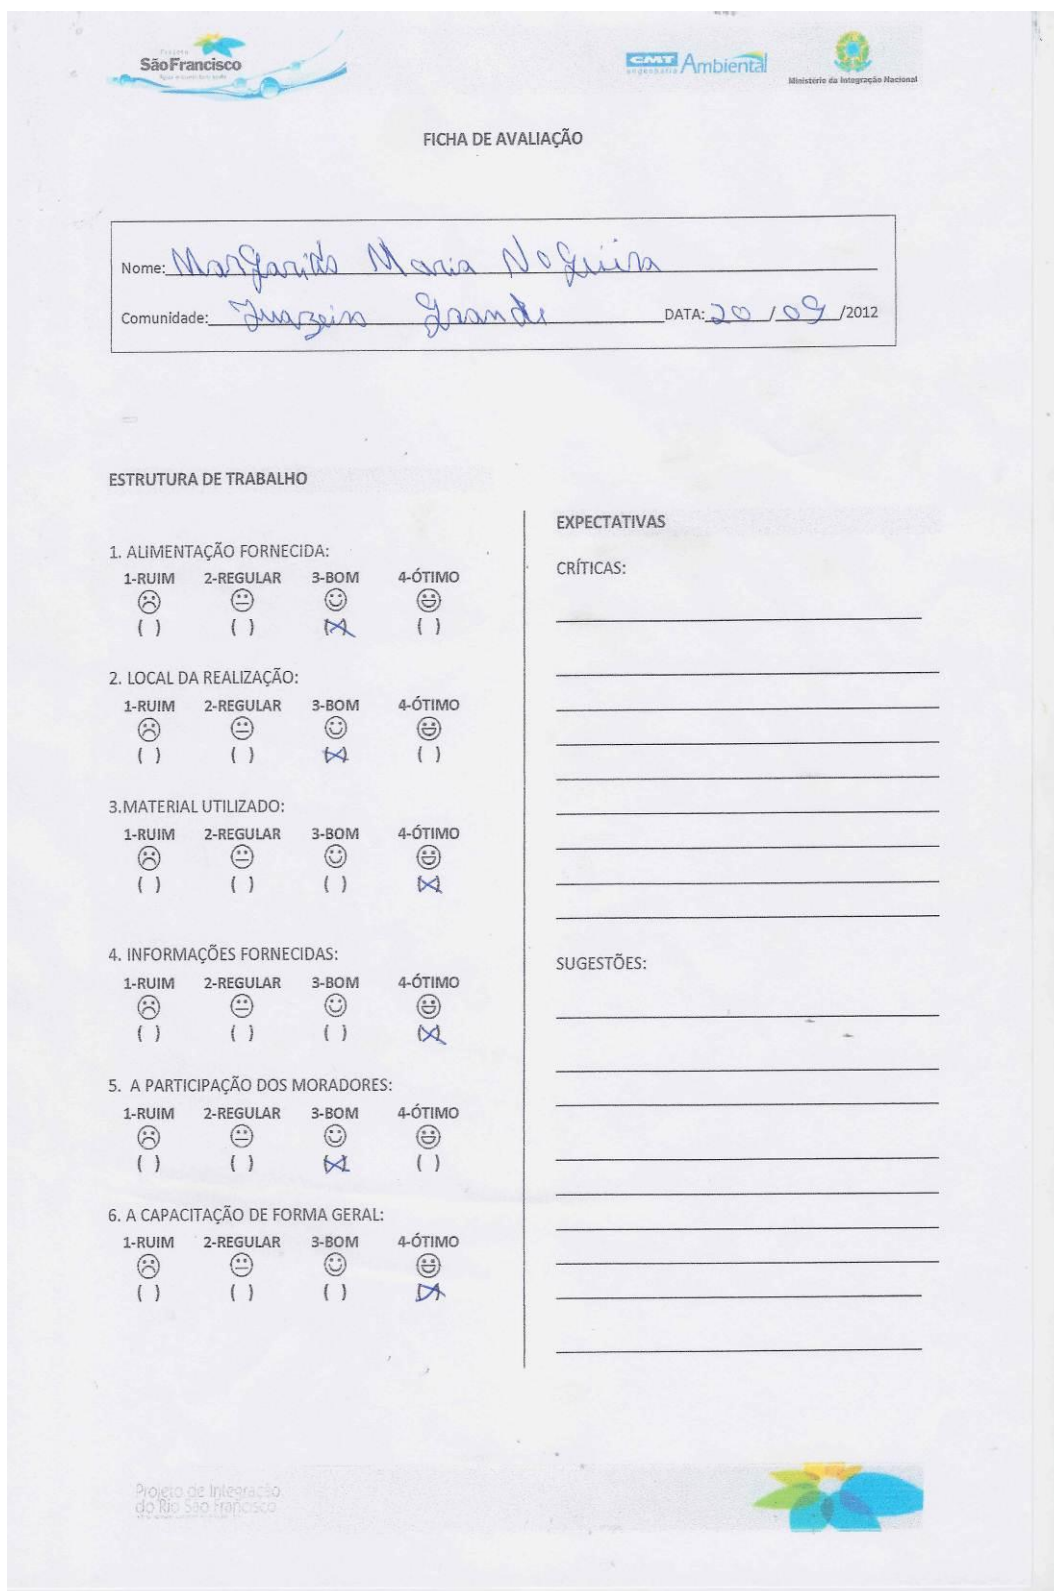 Projeto
São Francisco
CMT Ambiental
engenharia
Ministério da Integração Nacional
FICHA DE AVALIAÇÃO
Nome: Margarida Maria Noguiira
Comunidade: Juazeiro Grande DATA: 20 / 09 /2012
ESTRUTURA DE TRABALHO
1. ALIMENTAÇÃO FORNECIDA:
1-RUIM 2-REGULAR 3-BOM 4-ÓTIMO
( ) ( ) (X) ( )
2. LOCAL DA REALIZAÇÃO:
1-RUIM 2-REGULAR 3-BOM 4-ÓTIMO
( ) ( ) (X) ( )
3.MATERIAL UTILIZADO:
1-RUIM 2-REGULAR 3-BOM 4-ÓTIMO
( ) ( ) ( ) (X)
4. INFORMAÇÕES FORNECIDAS:
1-RUIM 2-REGULAR 3-BOM 4-ÓTIMO
( ) ( ) ( ) (X)
5. A PARTICIPAÇÃO DOS MORADORES:
1-RUIM 2-REGULAR 3-BOM 4-ÓTIMO
( ) ( ) (X) ( )
6. A CAPACITAÇÃO DE FORMA GERAL:
1-RUIM 2-REGULAR 3-BOM 4-ÓTIMO
( ) ( ) ( ) (X)
EXPECTATIVAS
CRÍTICAS:
SUGESTÕES:
Projeto de Integração
do Rio São Francisco